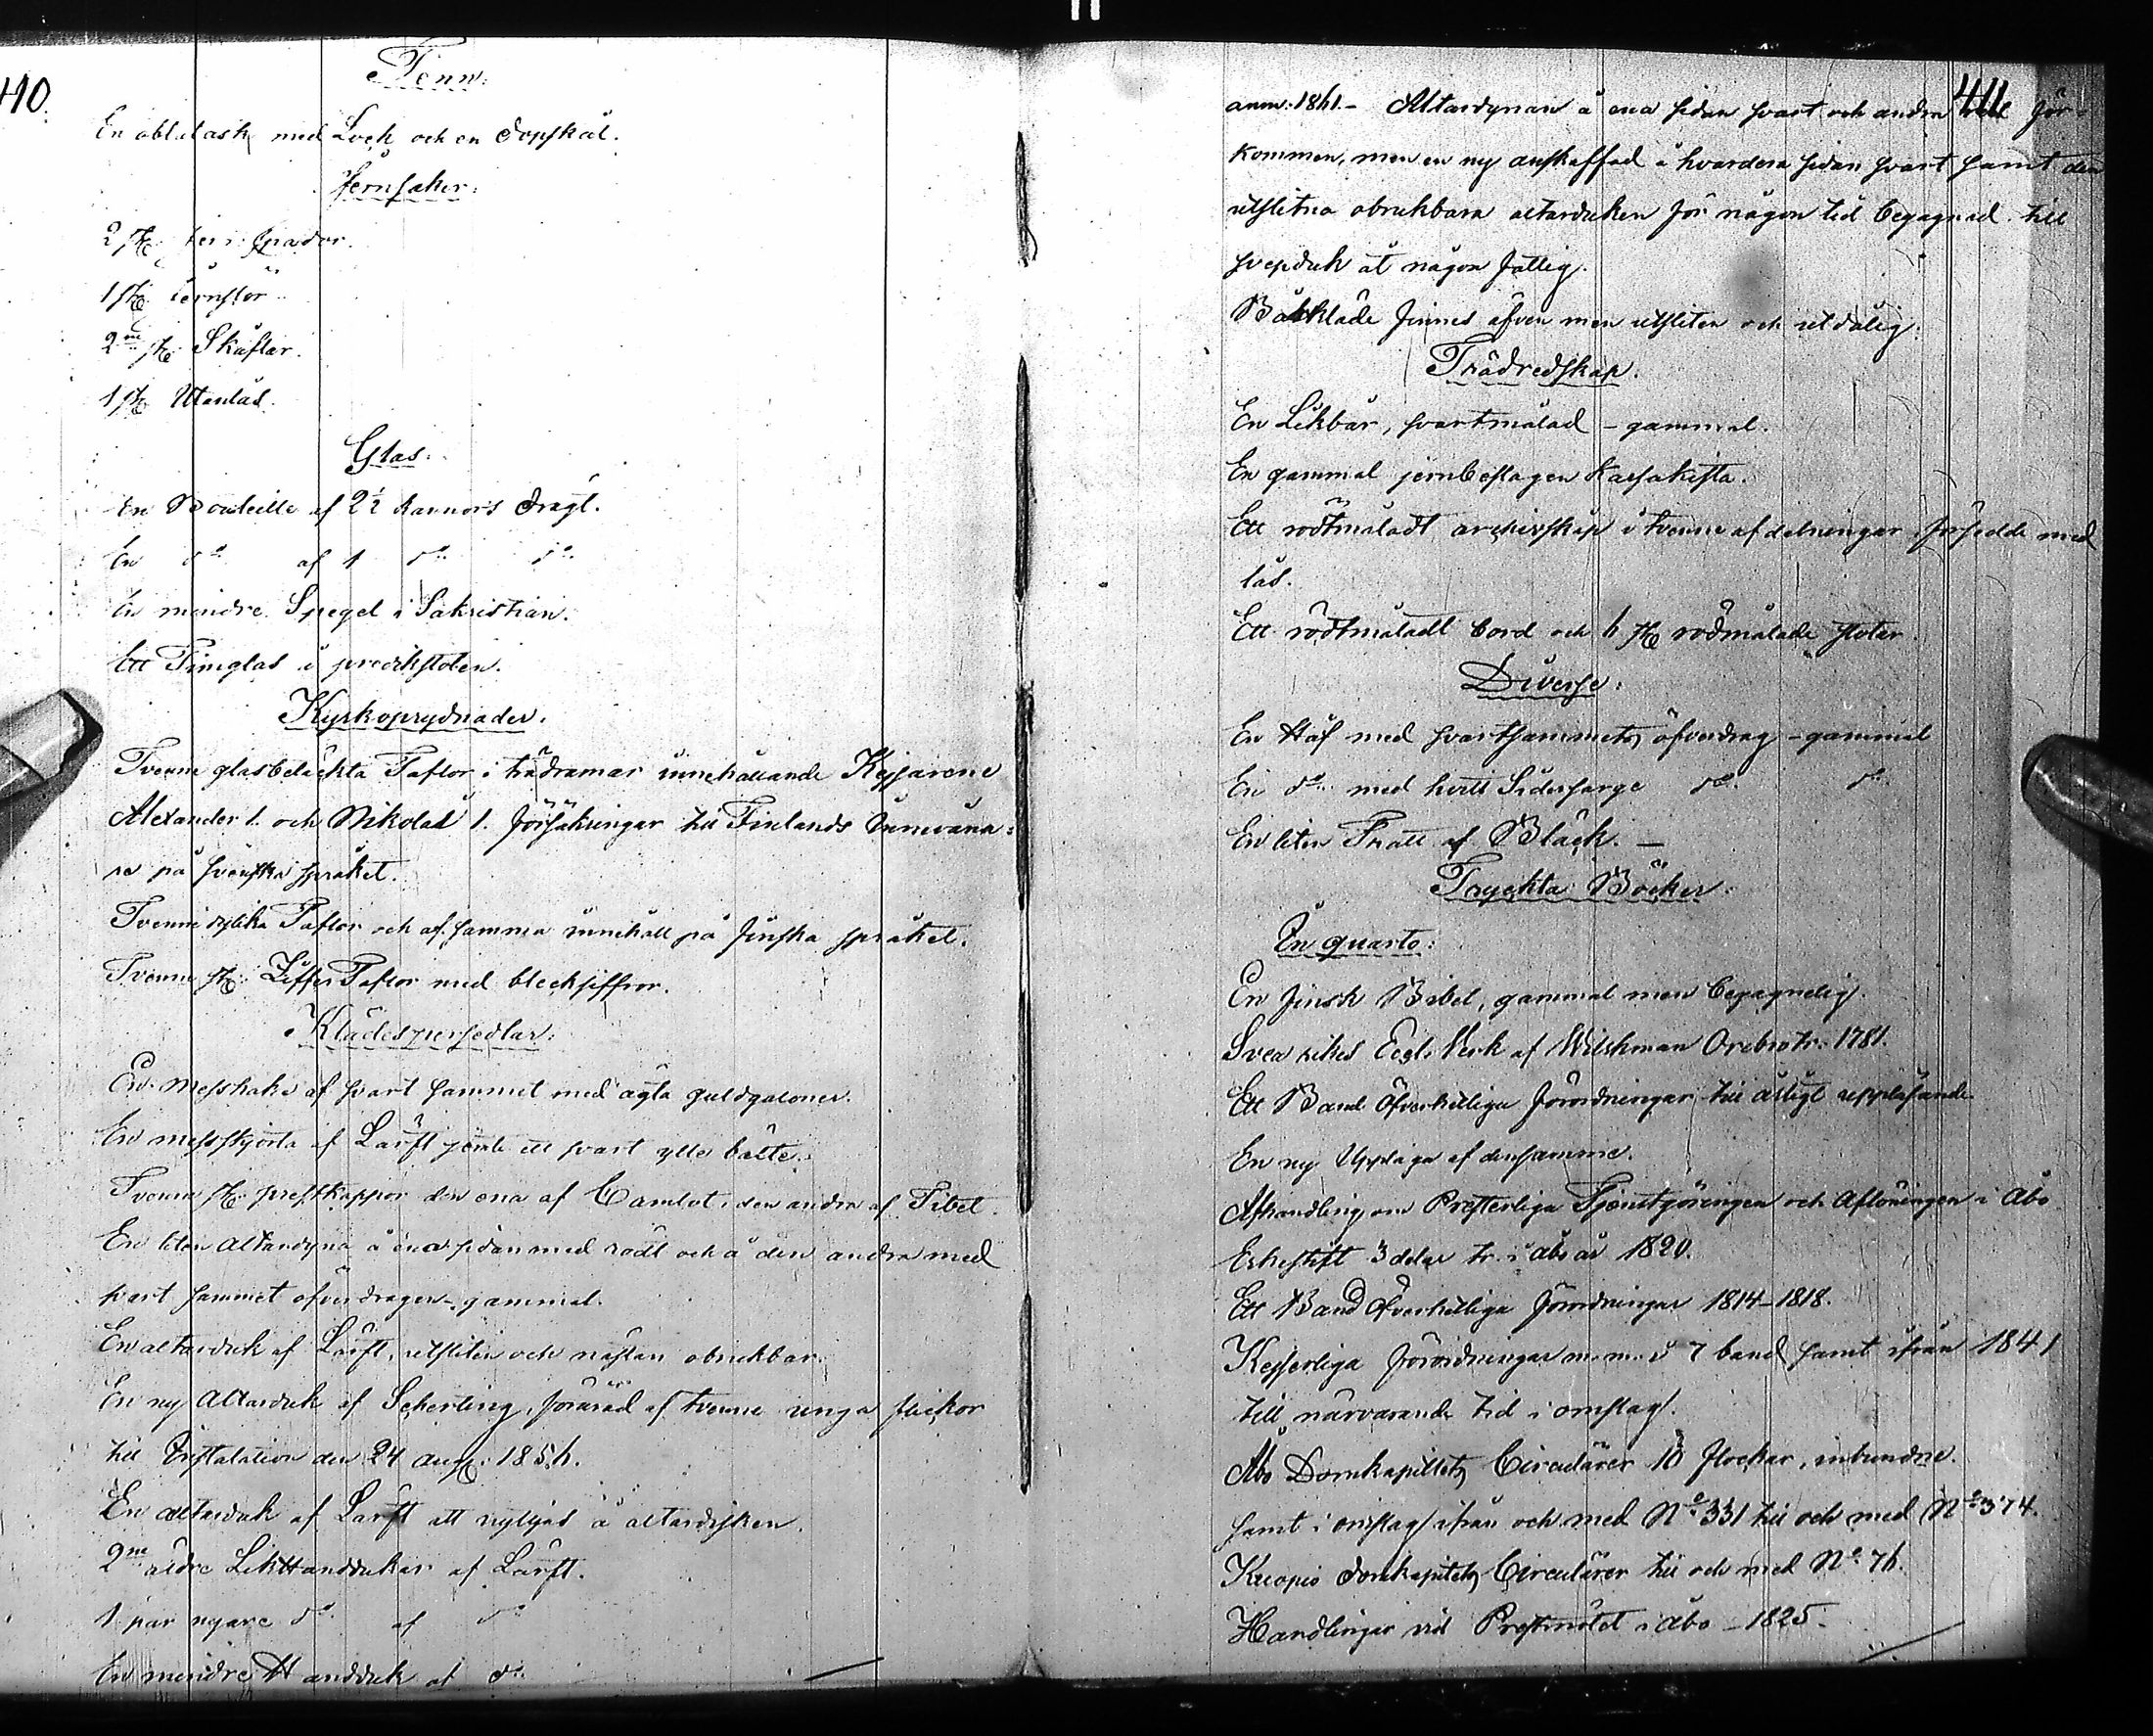 410.
Tenn:
En oblatask med Lock och en dopskål.
Jernsaker:
2 st. jern spador.
1 st. jernstör
2ne st. Skäflar.
1 st. Utanlås.
Glas:
En Bouteille af 2½ kannors dragt.
En do af 1 do do
En mindre Spegel i Sakristian.
Ett Timglas i predikstolen.
Kyrkoprydnader.
Tvenne glasbetäckta Taflor i trädramar innehållande Kejsarene
Alexander 1. och Nikolai 1. försäkringar till Finlands Innevåna:
re på svenska språket.
Tvenne dylika Taflor och af samma innehåll på finska språket.
Tvenne st. Ziffer Taflor med blecksiffror.
Klädespersedlar:
En messhake af svart sammet med ägta guldgaloner.
En messskjorta af Lärft jemte ett svart ylle bälte.
Tvenne st. prestkappor den ena af Camlot, den andra af Tibet.
En liten altardyna å ena sidan med rödt och å den andra med
svart sammet öfverdragen - gammal.
En altarduk af Lärft, utsliten och nästan obrukbar.
En ny Altarduk af Scherting, förärad af tvenne unga flickor
till Installation den 24 Aug. 1856.
En altarduk af Lärft att nyttjas å altardisken.
2ne äldre LikHanddukar af Lärft.
1 par nyare do af do
En mindre Handduk af do
411
anm: 1861.- Altardynan å ena sidan svart och andra för-
kommen, men en ny anskaffad å hvardera sidan svart samt den
utslitna obrukbara altarduken för någon tid begagnad till
svepduk åt någon fattig.
Bårkläde finnes äfven men utsliten och utdålig.
Trädredskap.
En Likbår, svartmålad - gammal.
En gammal jernbeslagen Kassakista.
Ett rödtmåladt arkivskåp i tvenne afdelningar försedde med
lås.
Ett rödtmåladt bord och 6 st rödmålade stolar.
Diverse:
En Håf med svartsammets öfverdrag - gammal
En do med hvitt Sidensarge do do
En liten Tratt af Bläck. -
Tryckta Böcker.
In quarto:
En finsk Bibel, gammal men begagnelig.
Svea rikes Eccl. Verk af Wilskman Örebro tr. 1781.
Ett Band Öfverhetliga förordningar till årligt uppläsande.
En ny Upplaga af densamme.
Afhandling om Presterliga Tjenstgöringen och Aflöningen i Åbo
Erkestift 3 delar tr. i Åbo år 1820.
Ett Band Öfverhetliga förordningar 1814-1818.
Kejserliga förordningar m.m. i 7 band samt ifrån 1841
till närvarande tid i omslag.
Åbo Domkapitlets Circulärer 10 flockar, inbundne.
samt i omslag ifrån och med No 331 till och med No 374.
Kuopio domkapitels Circulärer till och med No 76.
Handlingar vid Prestmötet i Åbo - 1825.